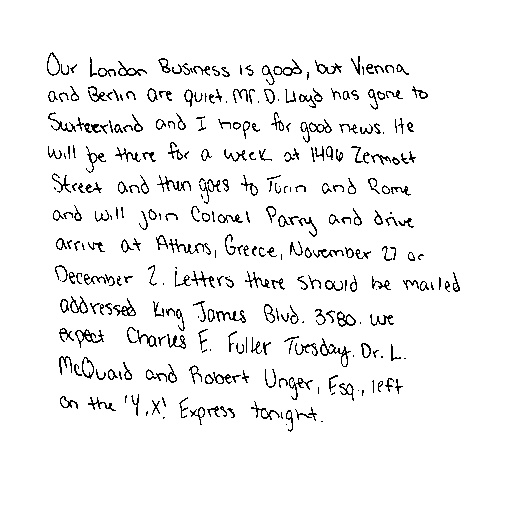 Our London Business is good, but Vienna
and Berlin are quiet. Mr. D. Lloyd has gone to
Switeerland and I hope for good news. He
will be there for a week at 1496 Zermott
Street and then goes to Turin and Rome
and will join Colonel Parry and drive
arrive at Athens, Greece, November 27 or
December 2. Letters there should be mailed
addressed King James Blvd. 3580. We
expect Charles E. Fuller Tuesday. Dr. L.
McQuaid and Robert Unger, Esq., left
on the 'Y.X!' Express tonight.